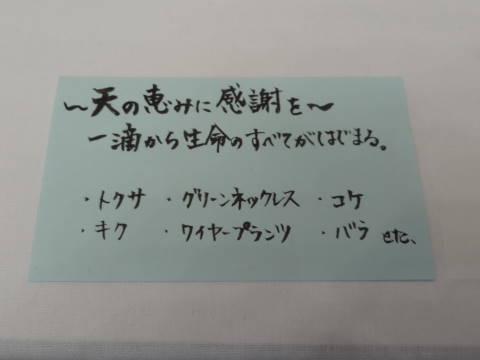 ～天の恵みに感謝を～
一滴から生命のすべてがはじまる。
・トクサ ・グリーンネックレス ・コケ
・キク ・ワイヤープランツ ・バラ